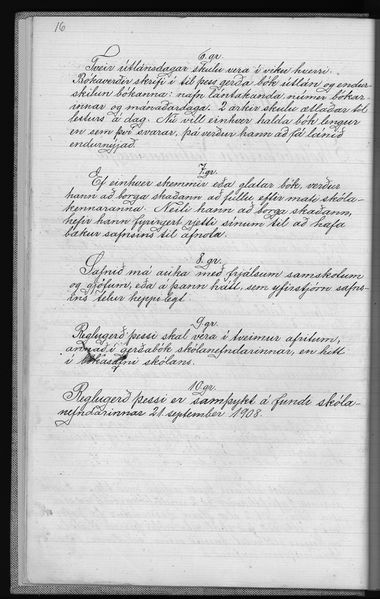 16
6 gr.
Tveir útlánsdagar skulu vera í viku hverri.
Bókaverðir skrifi í til þess gerða bók útlán og endur-
skilun bókanna: nafn lántakanda númer bókar-
innar og mánaðardaga. 2 arkir skulu ætlaðar til
lesturs á dag. Nú vill einhver halda bók lengur
en sem því svarar, þá verður hann að fá lánið
endurnýjað.
7 gr.
Ef einhver skemmir eða glatar bók, verður
hann að borga skaðann að fullu eftir mati skóla-
kennaranna. Neiti hann að borga skaðann,
hefir hann fyrirgert rjetti sínum til að hafa
bækur safnsins til afnota.
8 gr.
Safnið má auka með frjálsum samskotum
og gjöfum, eða á þann hátt, sem yfirstjórn safns-
ins telur heppilegt.
9 gr.
Reglugerð þessi skal vera í tveimur afritum,
annað í gerðabók skólanefndarinnar, en hitt
í bókasafni skólans.
10 gr.
Reglugerð þessi er samþykt á fundi skóla-
nefndarinnar 21. september 1908.